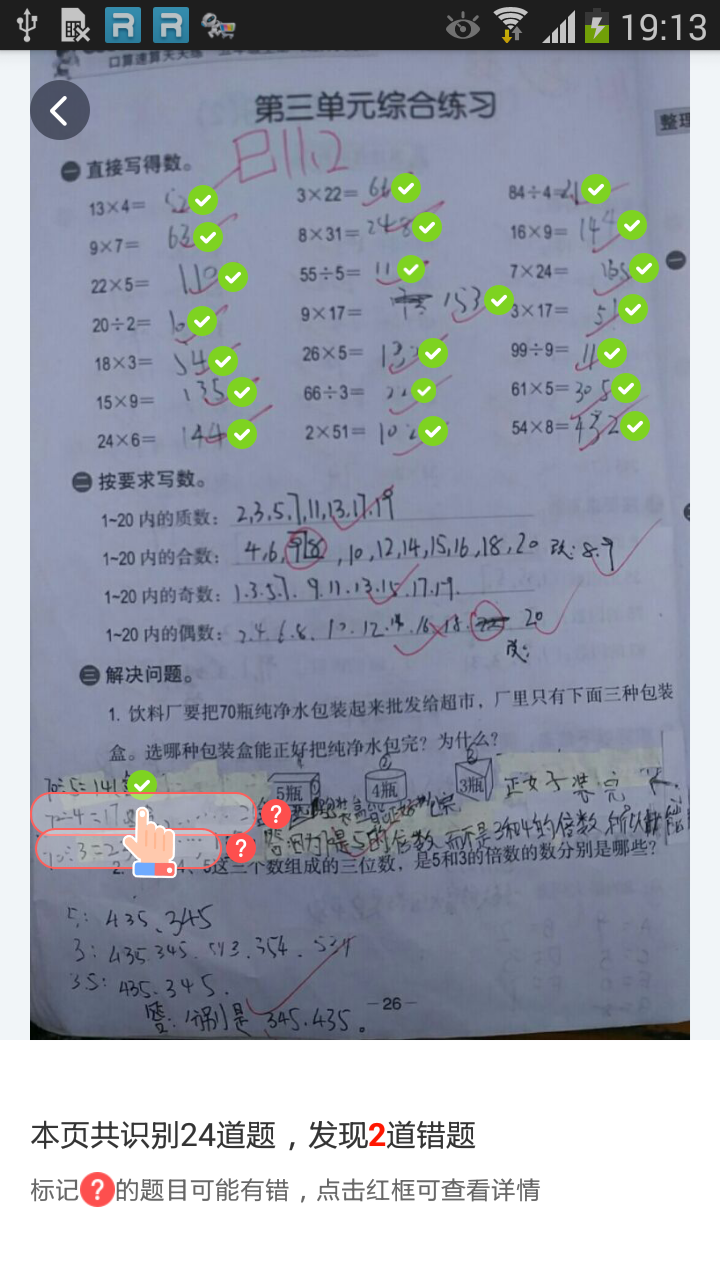 19:13
口算速算天天练
第三单元综合练习
整理
巳11.2
一 直接写得数。
13×4= 52 3×22= 66 84÷4=21
9×7= 63 8×31= 248 16×9= 144
22×5= 110 55÷5= 11 7×24=
20÷2= 10 9×17= 153 3×17= 51
18×3= 54 26×5= 99÷9= 11
15×9= 135 66÷3= 22 61×5= 305
24×6= 144 2×51= 102 54×8= 432
二 按要求写数。
1~20 内的质数: 2,3,5,7,11,13,17,19
1~20 内的合数: 4,6, ,10,12,14,15,16,18,20 改:8.9
1~20 内的奇数: 1.3.5.7. 9.11.13.15.17.19.
1~20 内的偶数: 2.4.6.8. 10.12.14.16.18. 20
改:
三 解决问题。
1. 饮料厂要把70瓶纯净水包装起来批发给超市,厂里只有下面三种包装
盒。选哪种包装盒能正好把纯净水包完?为什么?
① ② ③
5瓶 4瓶 3瓶
70÷5=14
答:因为 是5的倍数,而不是3和4的倍数,所以
2. 4、5这三个数组成的三位数,是5和3的倍数的数分别是哪些?
5: 435、345
3: 435.345. 543.354. 534
35: 435.345.
答:分别是 345.435。
-26-
本页共识别24道题,发现2道错题
标记?的题目可能有错,点击红框可查看详情